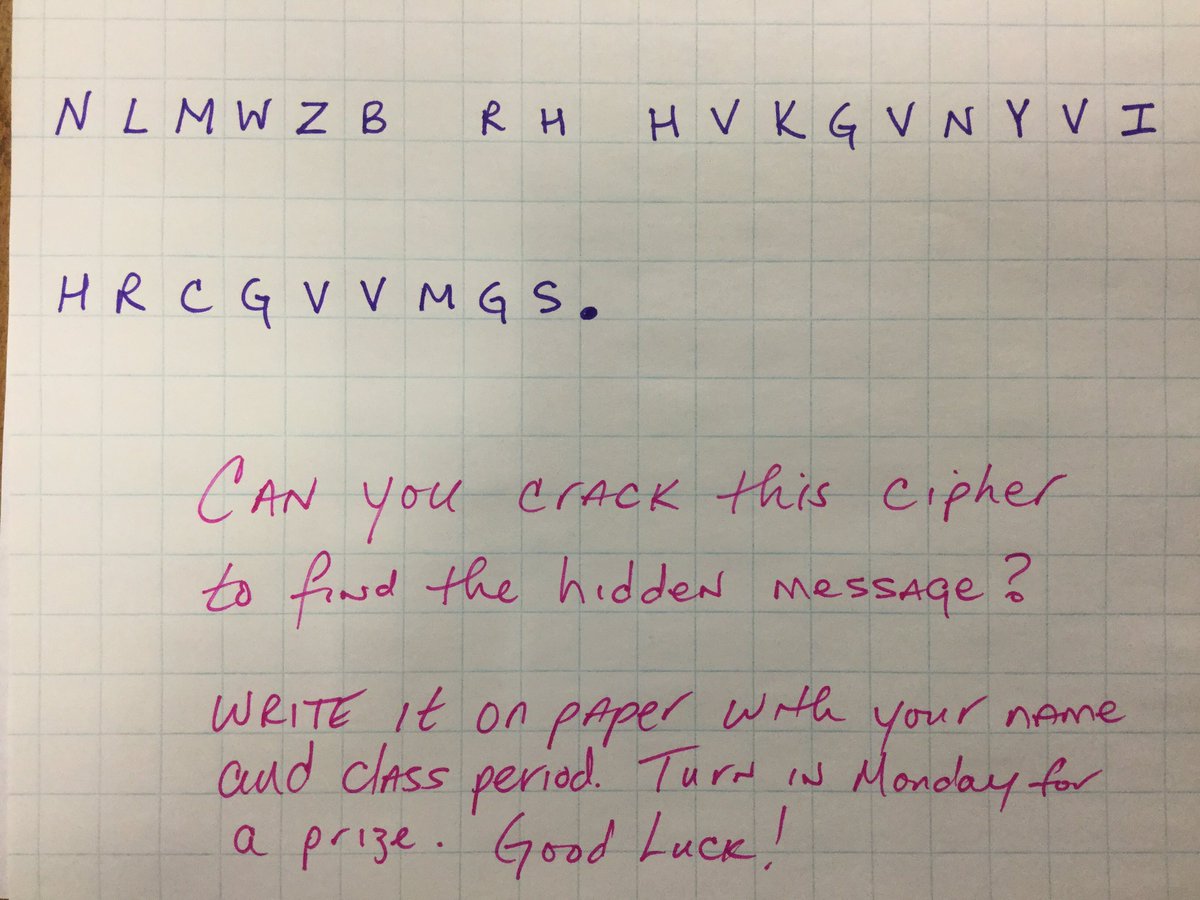 NLMWZB RH HVKGVNYVI
HRCGVVMGS.
CAN you crACK this cipher
to find the hidden messAge?
WRITE it on pAper with your nAme
and clAss period. Turn in Monday for
a prize. Good Luck!